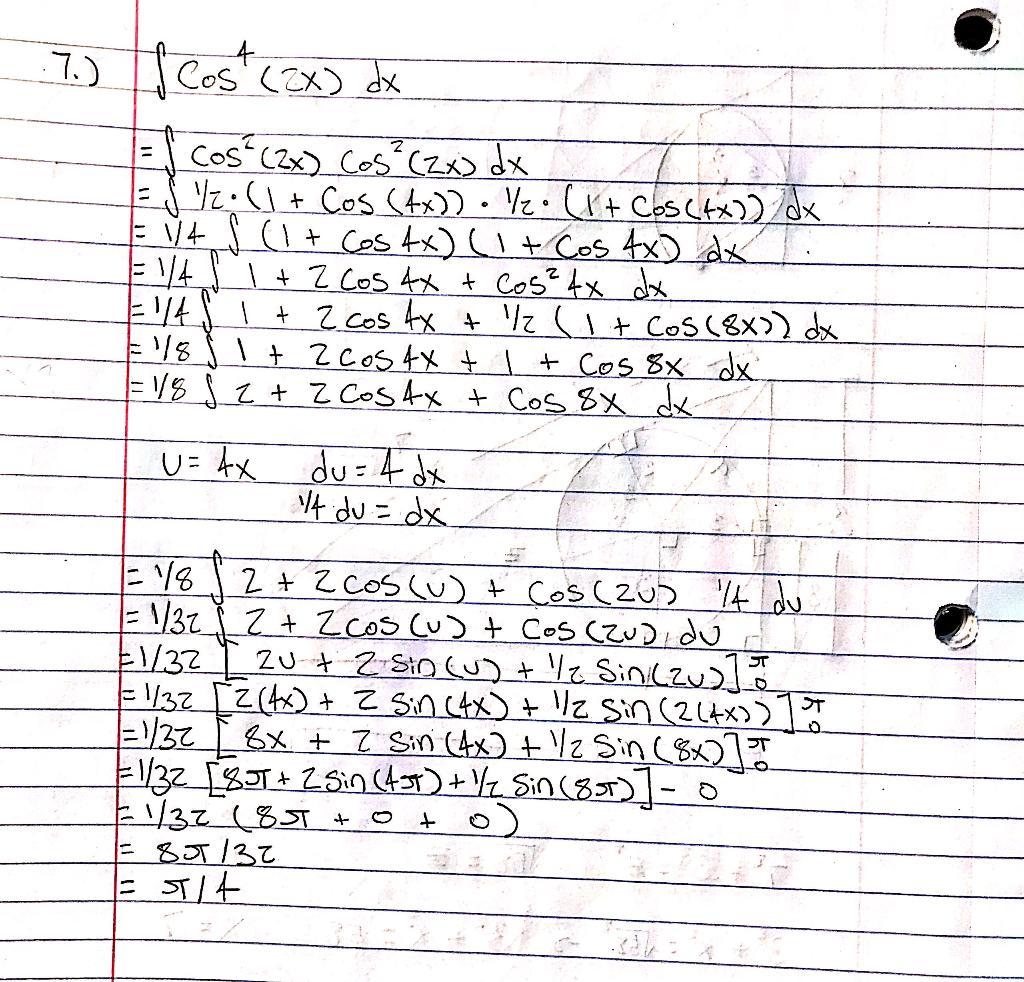 7.) ∫ Cos⁴ (2x) dx
= ∫ cos² (2x) cos² (2x) dx
= ∫ 1/2 · (1 + Cos (4x)) · 1/2 · (1 + Cos(4x)) dx
= 1/4 ∫ (1 + cos 4x) (1 + cos 4x) dx
= 1/4 ∫ 1 + 2 cos 4x + cos² 4x dx
= 1/4 ∫ 1 + 2 cos 4x + 1/2 (1 + cos(8x)) dx
= 1/8 ∫ 1 + 2 cos 4x + 1 + cos 8x dx
= 1/8 ∫ 2 + 2 cos 4x + cos 8x dx
u = 4x du = 4 dx
1/4 du = dx
= 1/8 ∫ 2 + 2 cos(u) + cos(2u) 1/4 du
= 1/32 ∫ 2 + 2 cos(u) + cos(2u) du
= 1/32 [ 2u + 2 sin(u) + 1/2 sin(2u) ]₀^π
= 1/32 [ 2(4x) + 2 sin(4x) + 1/2 sin(2(4x)) ]₀^π
= 1/32 [ 8x + 2 sin(4x) + 1/2 sin(8x) ]₀^π
= 1/32 [ 8π + 2 sin(4π) + 1/2 sin(8π) ] - 0
= 1/32 (8π + 0 + 0)
= 8π/32
= π/4